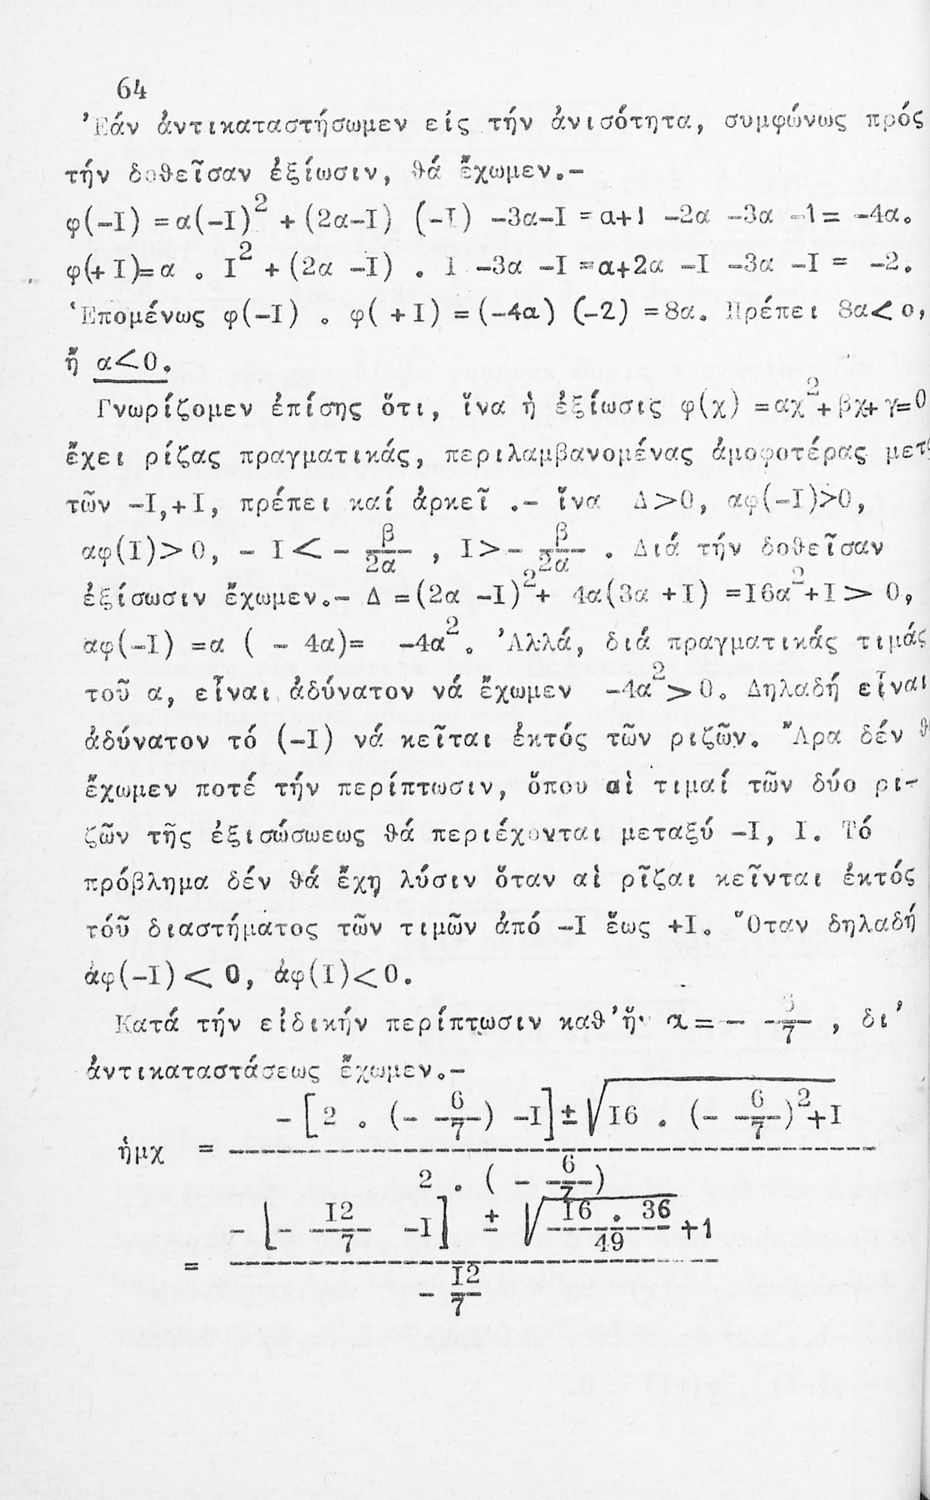 64
Ἐάν ἀντικαταστήσωμεν εἰς τήν ἀνισότητα, συμφώνως πρός
τήν δοθεῖσαν ἐξίωσιν, θά ἔχωμεν.-
φ(-I) =α(-I)² +(2α-I) (-I) -3α-I =α+1 -2α -3α -1= -4α.
φ(+I)=α . I² +(2α -I) . 1 -3α -I =α+2α -I -3α -I = -2.
Ἑπομένως φ(-I) . φ( +I) =(-4α) (-2) =8α. Πρέπει 8α<0,
ἤ α<0.
Γνωρίζομεν ἐπίσης ὅτι, ἵνα ἡ ἐξίωσις φ(χ) =αχ²+βχ+γ=0
ἔχει ρίζας πραγματικάς, περιλαμβανομένας ἀμφοτέρας μετ
τῶν -I,+I, πρέπει καί ἀρκεῖ .- ἵνα Δ>0, αφ(-I)>0,
αφ(I)>0, - I< - β/2α , I>- β/2α . Διά τήν δοθεῖσαν
ἐξίσωσιν ἔχωμεν.- Δ =(2α -I)²+ 4α(3α +I) =I6α²+I> 0,
αφ(-I) =α ( - 4α)= -4α². Ἀλλά, διά πραγματικάς τιμάς
τοῦ α, εἶναι ἀδύνατον νά ἔχωμεν -4α²>0. Δηλαδή εἶναι
ἀδύνατον τό (-I) νά κεῖται ἐκτός τῶν ριζῶν. Ἄρα δέν θ
ἔχωμεν ποτέ τήν περίπτωσιν, ὅπου αἱ τιμαί τῶν δύο ρι-
ζῶν τῆς ἐξισώσωεως θά περιέχονται μεταξύ -I, I. Τό
πρόβλημα δέν θά ἔχῃ λύσιν ὅταν αἱ ρῖζαι κεῖνται ἐκτός
τόῦ διαστήματος τῶν τιμῶν ἀπό -I ἕως +I. Ὅταν δηλαδή
ἀφ(-I)< 0, ἀφ(I)<0.
Κατά τήν εἰδικήν περίπτωσιν καθ'ἥν α = - 6/7 , δι'
ἀντικαταστάσεως ἔχωμεν.-
ἡμχ = (-[2 . (- 6/7) -I] ± √I6 . (- 6/7)²+I) / (2 . ( - 6/7))
= (- [- I2/7 -I] ± √(I6 . 36)/49 +1) / (- I2/7)